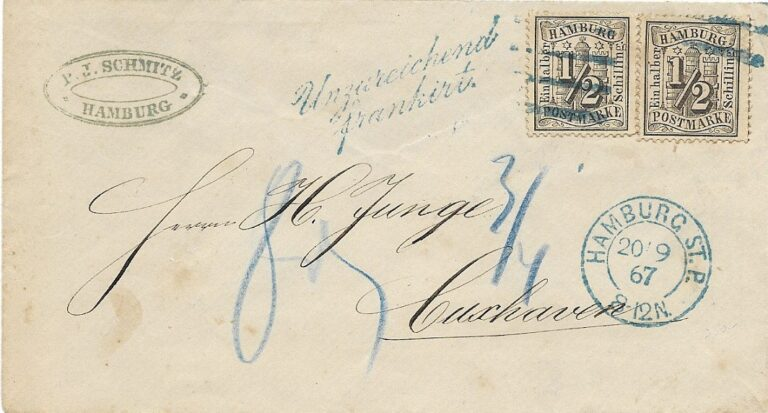 P. J. SCHMITZ
HAMBURG
Unzureichend
frankirt.
HAMBURG
Ein halber
1/2
Schilling
POSTMARKE
HAMBURG
Ein halber
1/2
Schilling
POSTMARKE
Herrn H. Junge
3/4
Cuxhaven
HAMBURG ST. P.
20 9
67
9-12 N.